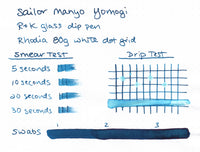 Sailor Manyo Yomogi
R+K glass dip pen
Rhodia 80g white dot grid
Smear Test
Drip Test
5 seconds
10 seconds
20 seconds
30 seconds
Swabs 1 2 3